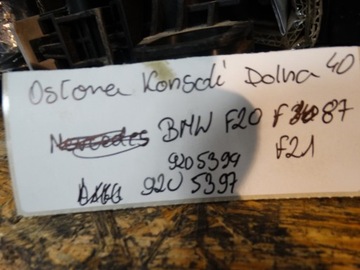 Osłona Konsoli Dolna 40
Mercedes BMW F20 F 87
9205399 F21
920 5397